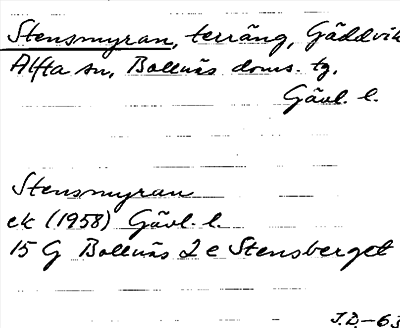 Stensmyran, terräng, Gäddvik
Alfta sn, Bollnäs doms. tg.
Gävl. l.
Stensmyran
ek (1958) Gävl. l.
15 G Bollnäs 2 e Stensberget
J.D.-63